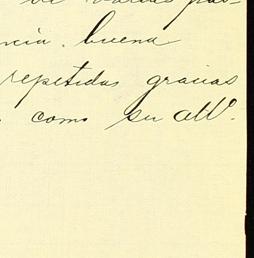 de varias
ncia. buena
repetidas gracias
como su attº.